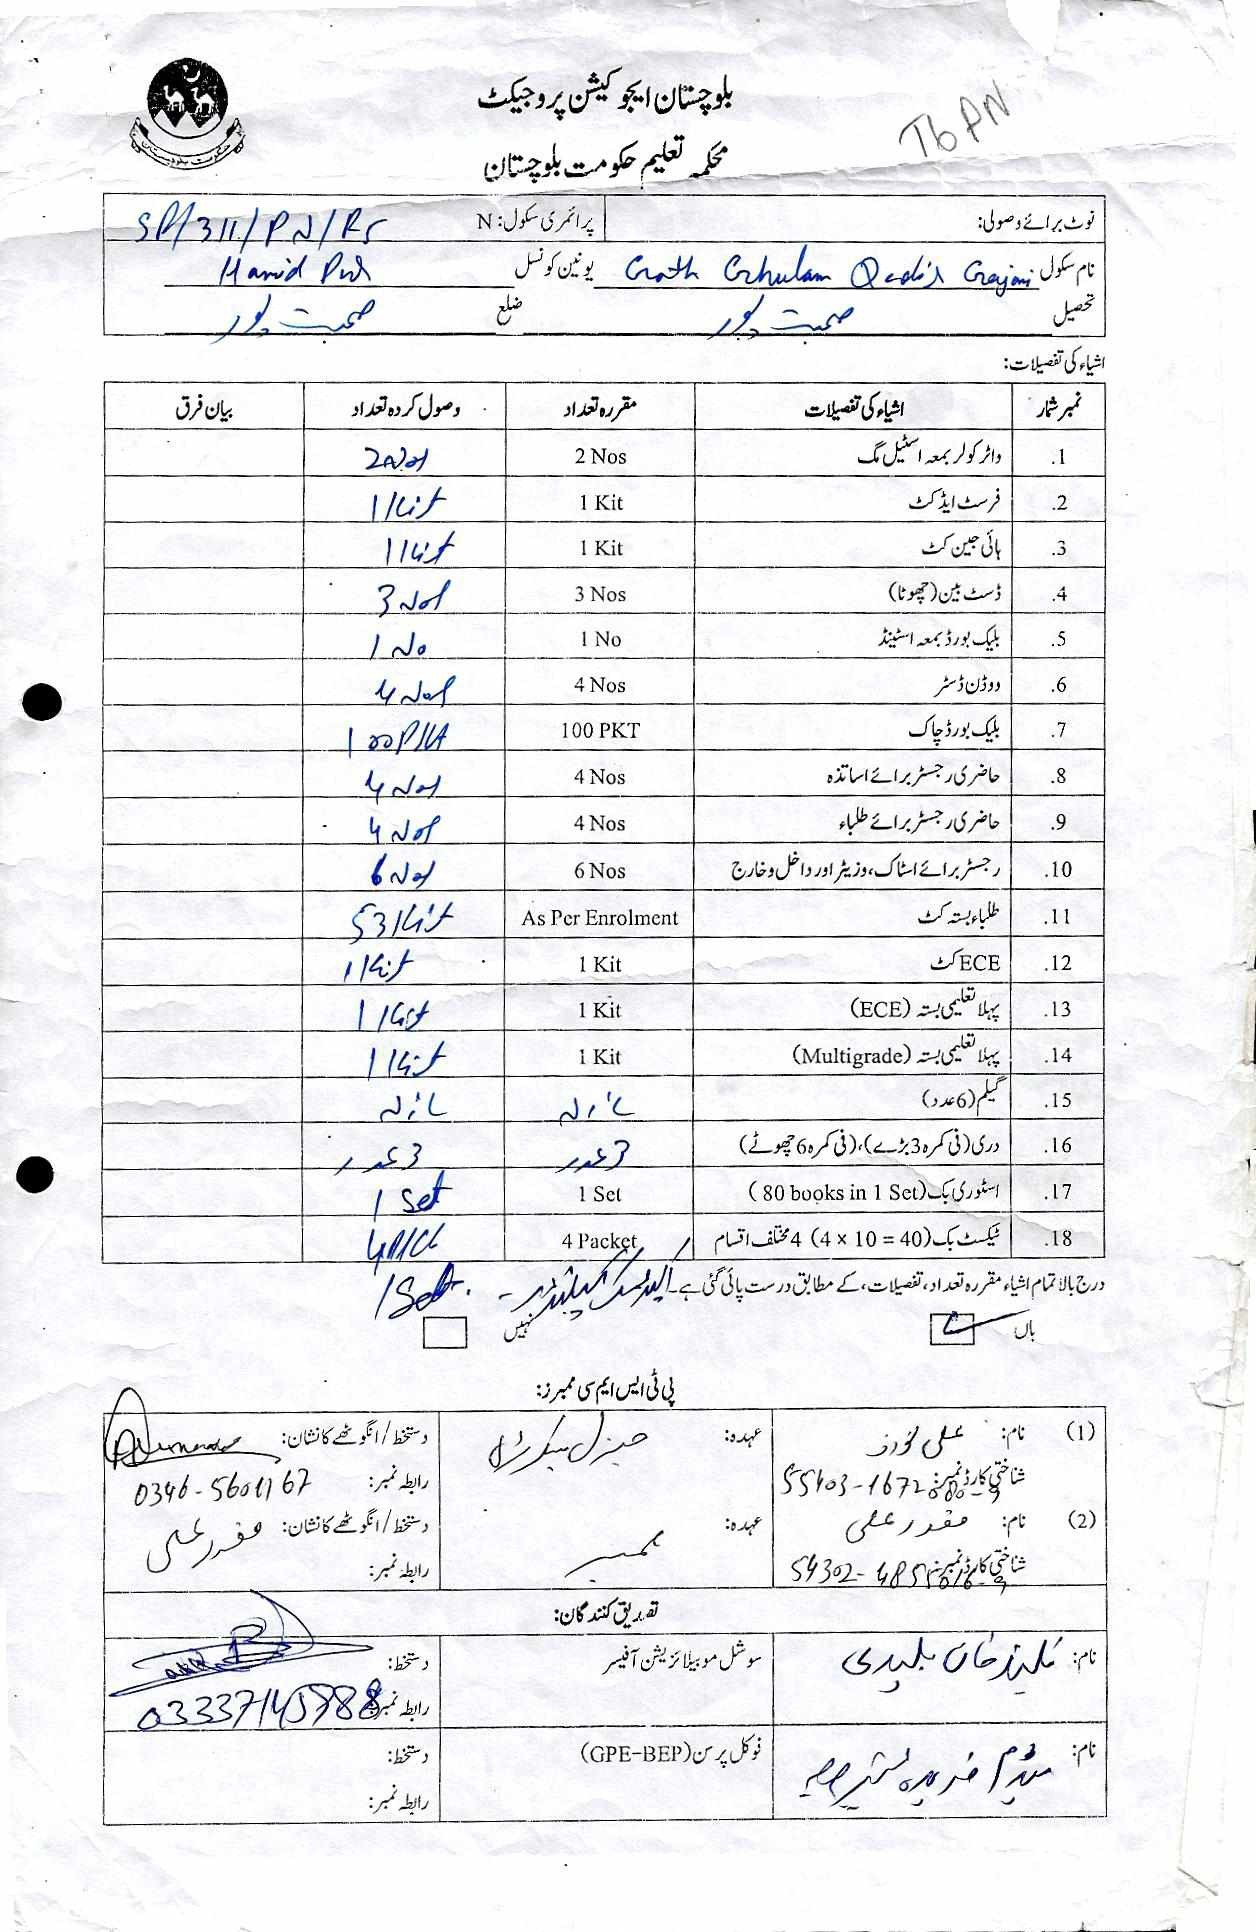 بلوچستان ایجوکیشن پروجیکٹ
محکمہ تعلیم حکومت بلوچستان
حکومت بلوچستان
نوٹ برائے وصولی: پرائمری سکول: N SP/311/PN/RS
نام سکول Goth Ghulam Qadir یونین کونسل Hamid Pur
تحصیل صحبت پور ضلع صحبت پور
اشیاء کی تفصیلات:
نمبر شمار اشیاء کی تفصیلات مقررہ تعداد وصول کردہ تعداد بیان فرق
1. واٹر کولر بمعہ اسٹیل مگ 2 Nos 2 Nos
2. فرسٹ ایڈ کٹ 1 Kit 1 Kit
3. ہائی جین کٹ 1 Kit 1 Kit
4. ڈسٹ بین (چھوٹا) 3 Nos 3 Nos
5. بلیک بورڈ بمعہ اسٹینڈ 1 No 1 No
6. ووڈن ڈسٹر 4 Nos 4 Nos
7. بلیک بورڈ چاک 100 PKT 100 PKt
8. حاضری رجسٹر برائے اساتذہ 4 Nos 4 Nos
9. حاضری رجسٹر برائے طلباء 4 Nos 4 Nos
10. رجسٹر برائے اسٹاک، وزیٹر اور داخل و خارج 6 Nos 6 Nos
11. طلباء بستہ کٹ As Per Enrolment 53 Kit
12. ECE کٹ 1 Kit 1 Kit
13. پہلا تعلیمی بستہ (ECE) 1 Kit 1 Kit
14. پہلا تعلیمی بستہ (Multigrade) 1 Kit 1 Kit
15. گیلم (6 عدد)
16. دری (فی کمرہ 3 بڑے)، (فی کمرہ 6 چھوٹے) 3 عدد 3 عدد
17. اسٹوری بک (80 books in 1 Set) 1 Set 1 Set
18. ٹیکسٹ بک (4 × 10 = 40) 4 مختلف اقسام 4 Packet
درج بالا تمام اشیاء مقررہ تعداد، تفصیلات، کے مطابق درست پائی گئی ہے۔ 1 Set.
ہاں نہیں
پی ٹی ایس ایم سی ممبرز:
(1) نام: علی نواز عہدہ: جنرل سیکرٹری دستخط/انگوٹھے کا نشان:
شناختی کارڈ نمبر: رابطہ نمبر:
(2) نام: عہدہ: ممبر دستخط/انگوٹھے کا نشان:
شناختی کارڈ نمبر: رابطہ نمبر:
تصدیق کنندگان:
نام: سوشل موبیلائزیشن آفیسر دستخط:
رابطہ نمبر:
نام: میڈم فریدہ فوکل پرسن (GPE-BEP) دستخط:
رابطہ نمبر: